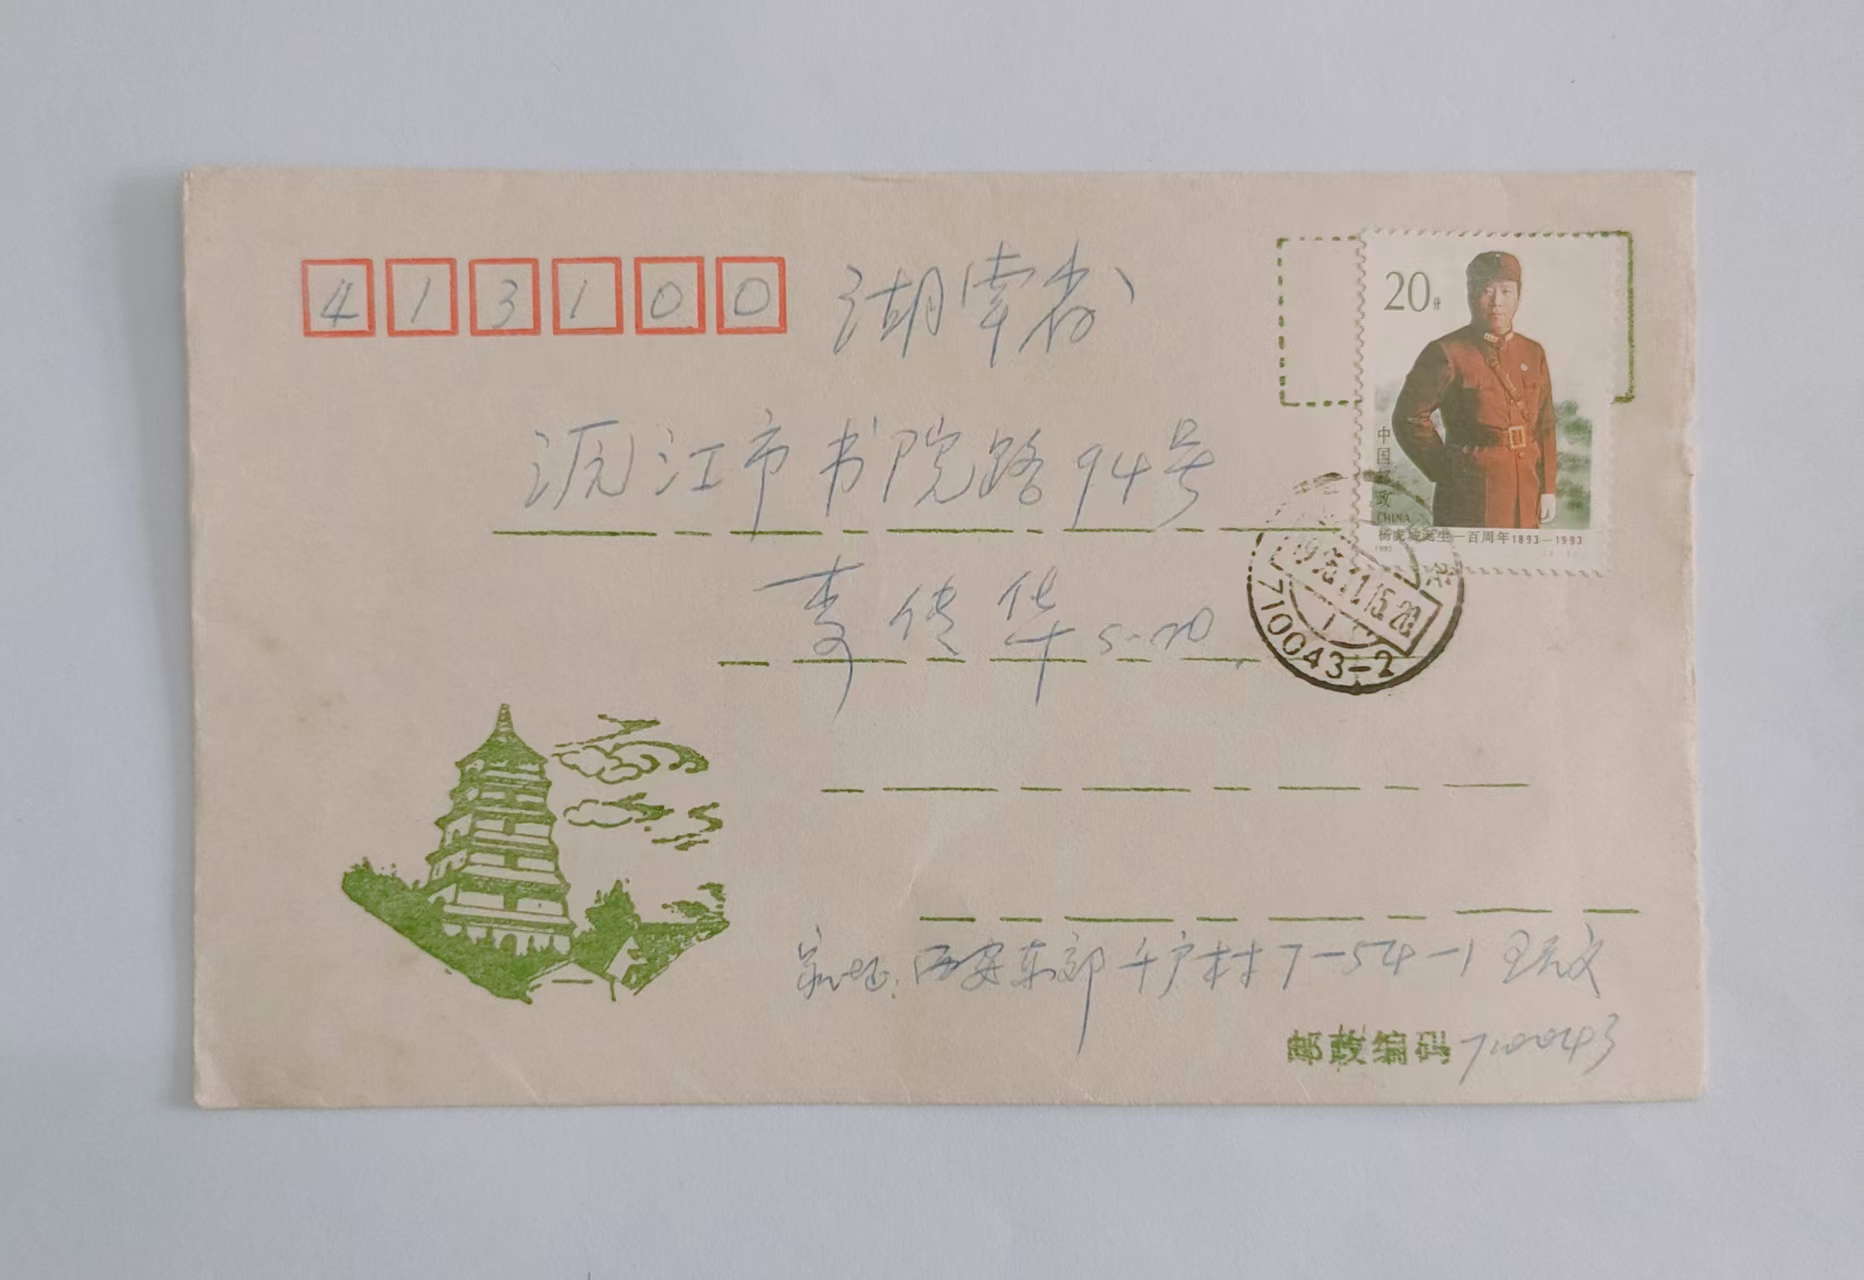 413100
湖南省
沅江市书院路94号
李传华
20分
中国邮政
CHINA
杨虎城诞生一百周年1893—1993
1993
710043-2
家址:西安东郊千户村7-54-1
邮政编码710043